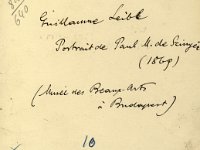 640
Guillaume Leibl
Portrait de Paul M. de Szinyei
(1869)
(Musée des Beaux-Arts
à Budapest)
10